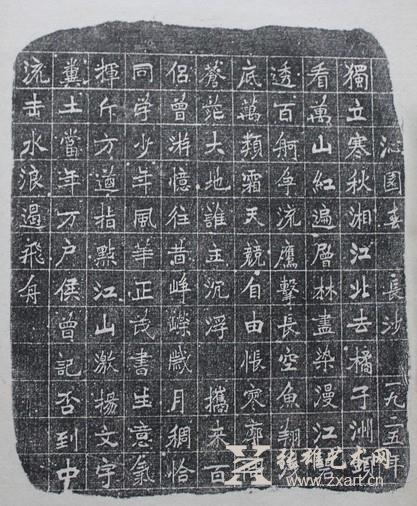 沁園春 長沙 一九二五年
獨立寒秋湘江北去橘子洲頭
看萬山紅遍層林盡染漫江碧
透百舸争流鷹擊長空魚翔淺
底萬類霜天競自由悵寥廓問
蒼茫大地誰主沉浮 攜来百
侣曾游憶往昔崢嶸歲月稠恰
同学少年風華正茂書生意氣
揮斥方遒指點江山激揚文字
糞土當年万户侯曾記否到中
流击水浪遏飛舟
张雄艺术网
www.zxart.cn